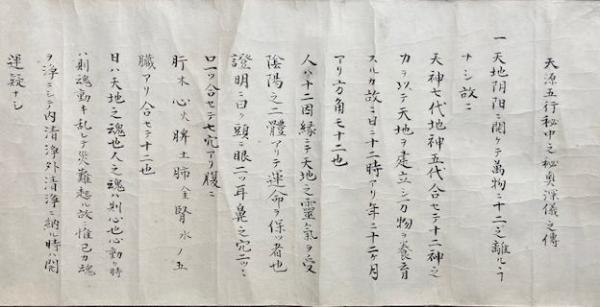 天源五行秘中之秘奥深儀之傳
一天地阴阳ニ開ケテ萬物ニ十二之離ルヽヿ
ナシ故ニ
天神七代地神五代合セテ十二神之
力ヲ以テ天地ヲ建立シ万物ヲ養育
スルカ故ニ日ニ十二時アリ年ニ十二ケ月
アリ方角モ十二也
人ハ十二因縁ニテ天地之靈氣ヲ受
陰陽之二體アリテ運命ヲ保ツ者也
證明ニ曰ク頭ニ眼二ツ耳鼻之穴二ツヽ
口一ツ合セテ七穴アリ腹ニ
肝木心火脾土肺金腎水ノ五
臓アリ合セテ十二也
日ハ天地之魂也人之魂ハ則心也心動ク時
ハ則魂動キ乱レテ災難起ル故ニ惟己カ魂
ヲ浄ニシテ内清浄外清浄ニ納ル時ハ開
運疑ナシ